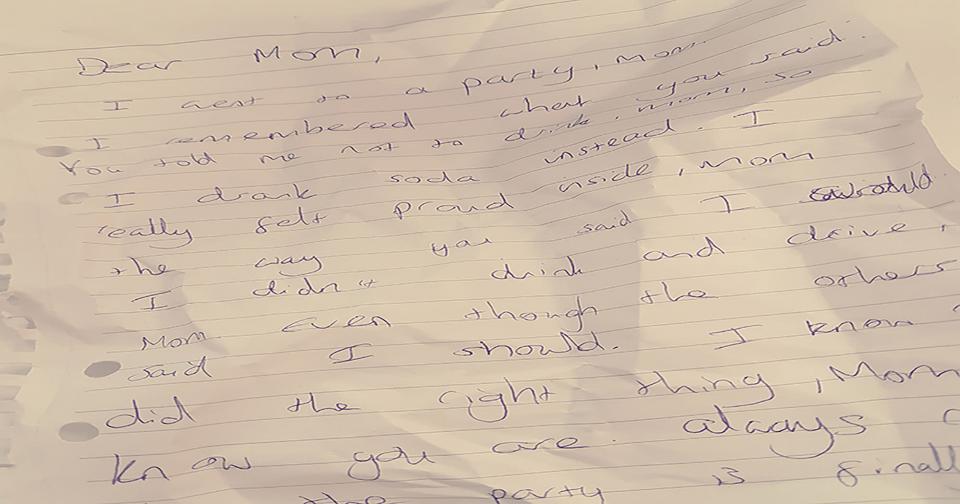 Dear Mom,
I went to a party, Mom
I remembered what you said.
You told me not to drink, mom, so
I drank soda instead. I
really felt proud inside, Mom
the way you said I would
I didn't drink and drive,
Mom even though the others
said I should. I know
did the right thing, Mom
know you are always
the party is finall